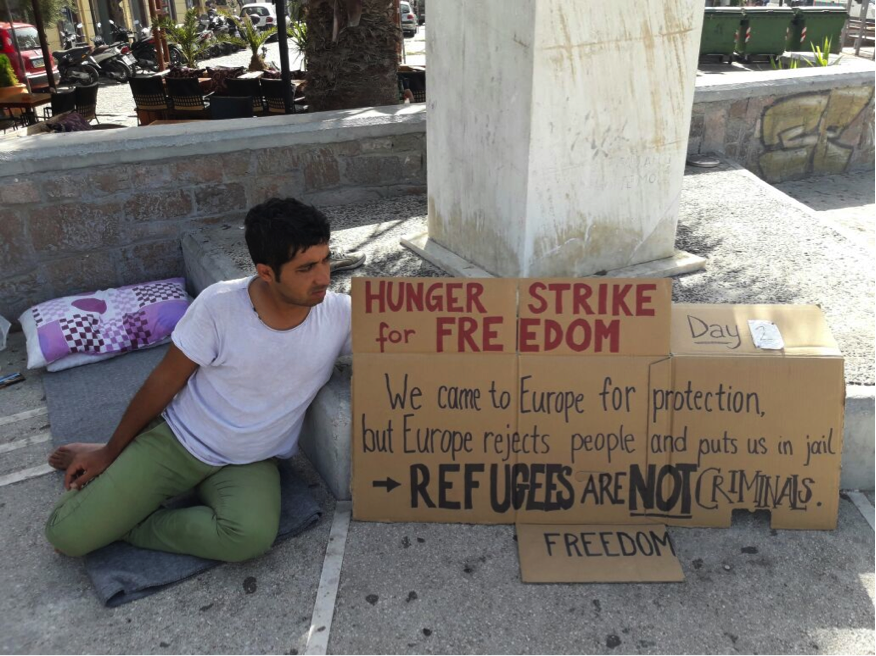 HUNGER STRIKE
for FREEDOM
Day
We came to Europe for protection,
but Europe rejects people and puts us in jail
→ REFUGEES ARE NOT CRIMINALS.
FREEDOM